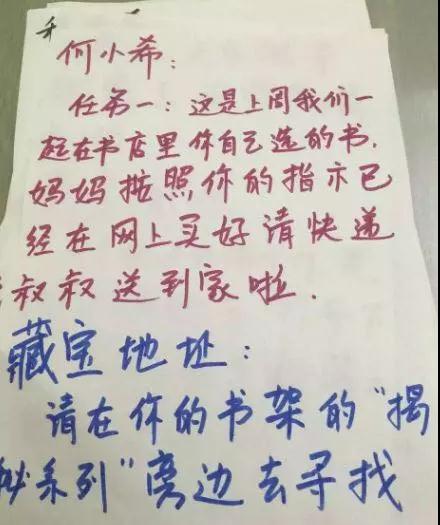 何小希：
任务一：这是上周我们一
起在书店里你自己选的书.
妈妈按照你的指示已
经在网上买好请快递
叔叔送到家啦.
藏宝地址：
请在你的书架的“揭
秘系列”旁边去寻找